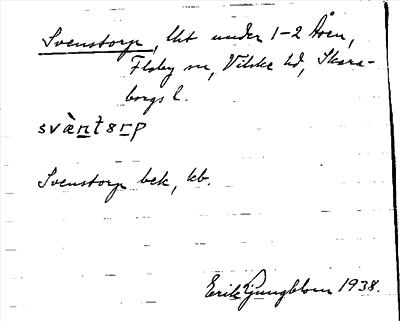 Svenstorp, lht under 1-2 Åsen,
Floby sn, Vilske hd, Skara-
borgs l.
svàntsrp
Svenstorp bek, kb.
Erik Ljungblom 1938.